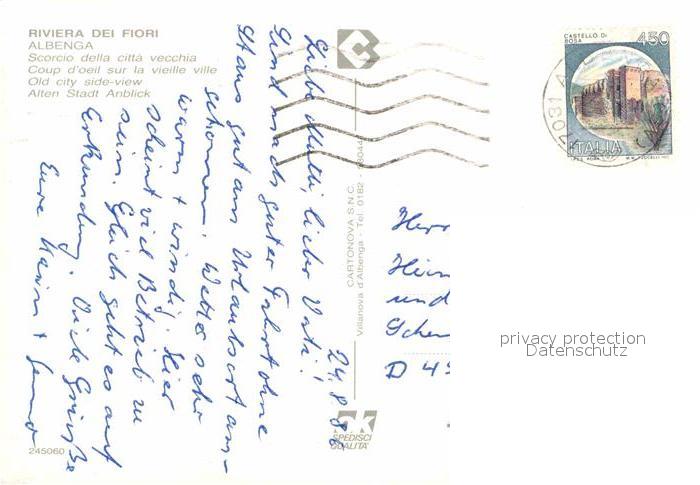 RIVIERA DEI FIORI
ALBENGA
Scorcio della città vecchia
Coup d'oeil sur la vieille ville
Old city side-view
Alten Stadt Anblick
CASTELLO DI
ROSA
450
ITALIA
24.8.86
Liebe Mutti, lieber Vati!
Sind nach guter Fahrt ohne
Staus gut am Urlaubsort an-
gekommen. Wetter sehr
warm + windig. Hier
scheint viel Betrieb zu
sein. Gleich geht es auf
Erkundung. Viele Grüße
Eure Karin +
CARTONOVA S.N.C.
Villanova d'Albenga - Tel. 0182 -
Herr
Hein
und
D 49
privacy protection
Datenschutz
SPEDISCI
QUALITA'
245060